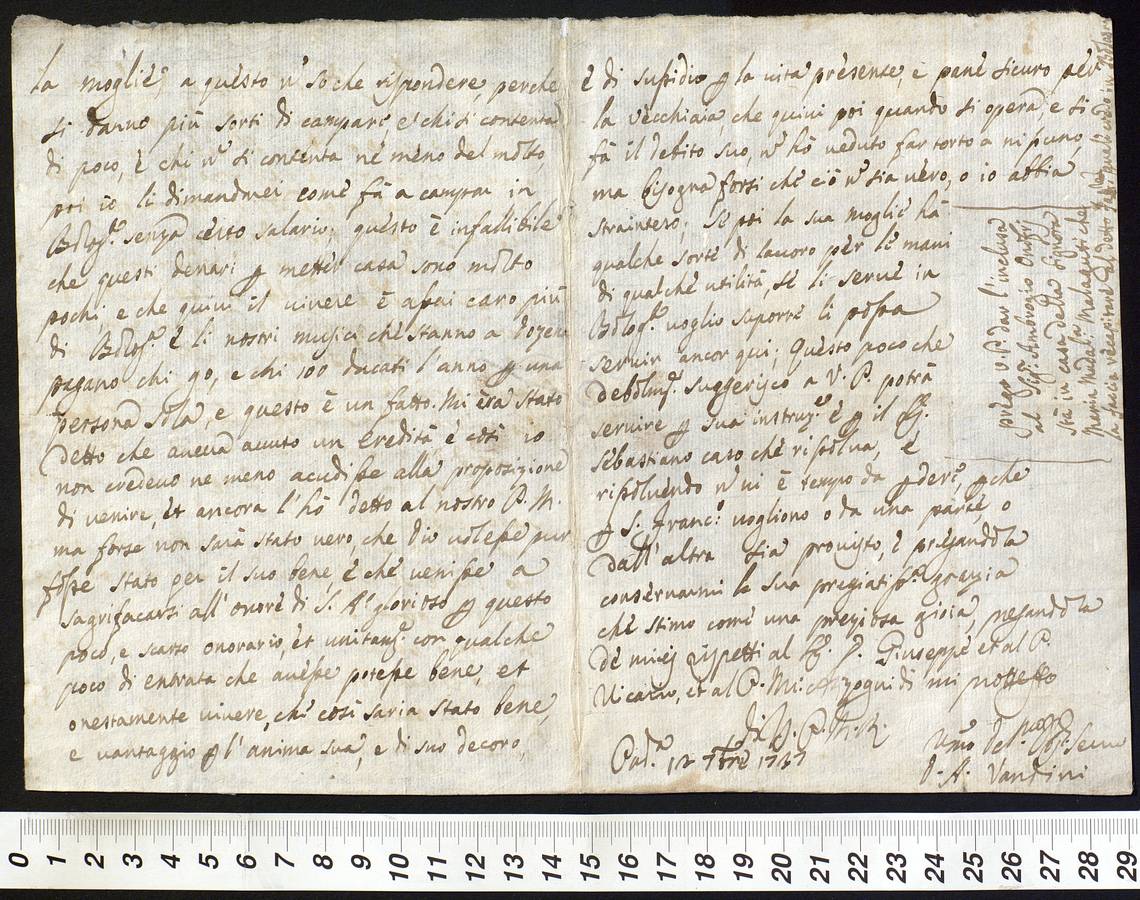 la moglie, a questo nˉ so che rispondere, perche
si danno più sorti di campare e chi si contenta
di poco, è chi nˉ si contenta ne meno del molto,
poi io li dimandarei come fà a campar in
Bolog.ª senza certo salario; questo è infallibile
che questi denari p metter casa sono molto
pochi e che quivi il vivere è assai caro più
di Bolog.ª è li nostri musici che stanno a dozena
pagano chi 90, e chi 100 ducati l'anno p una
persona sola, e questo è un fatto. Mi èra stato
detto che aveva avuto un eredità è così io
non credevo ne meno acudisse alla proposizione
di venire, èt ancora l'hò detto al nostro P. M.
ma forse non sarà stato vero, che Dio volesse pur
fosse stato per il suo bene è che venisse a
sagrificarsi all'onore di S. Aº glorioso p questo
poco, e scarso onorario, èt unitamᵉ con qualche
poco di entrata che avesse potesse bene, et
onestamente vivere, che così saria stato bene,
e vantaggio p l'anima sua, e di suo decoro,
è di susidio p la vita presente, e pane sicuro pèr
la vecchiaia, che quivi poi quando si opera, e si
fà il debito suo, nˉ hò veduto far torto a nissuno,
ma bisogna forsi che ciò nˉ sia vero, o io abbia
straintero; Se poi la sua moglie hà
qualche sorte di lavoro pèr le mani
di qualche utilità, se li serve in
Bolog.ª voglio suporre li possa
servir ancor qui; Questo poco che
debolmᵉ suggerisco a V. P. potrà
servire p sua instruzᵉ è p il Sig.
Sebastiano caso che risolva, è
risolvendo nˉ vi è tempo da pdere, pche
p S. Franc.º vogliono o da una parte, o
dall'altra sia provisto, è pregandola
conservarmi la sua pregiatiss.ª grazia
che stimo come una preziosa gioia, pregandola
de miei rispetti al P. Giuseppe et al P.
Vicario, et al P. M. mi protesto
Di V. P. M. R.
Pad.ª 12 7bre 1737
Umo Serv
D. A. Vandini
prego V. P. dar l'inclusa
al Sig. Ambrogio
stà in casa della Signora
Maria Madal.ª Malaguti che